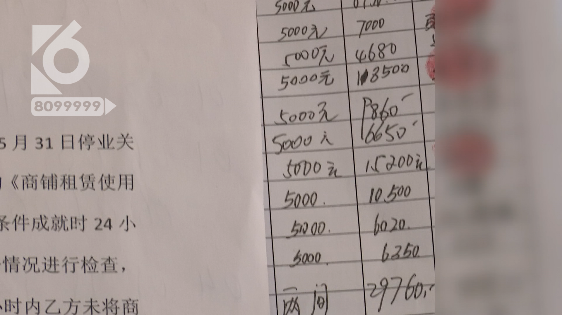 6
8099999
5月31日停业关
《商铺租赁使用
条件成就时24小
情况进行检查,
时内乙方未将商
5000元
5000元 7000
5000元 4680
5000元 8500
5000元 860
5000元 16650
5000元 15200元
5000. 10.500
5000. 6020.
5000. 6250
两间 29760.